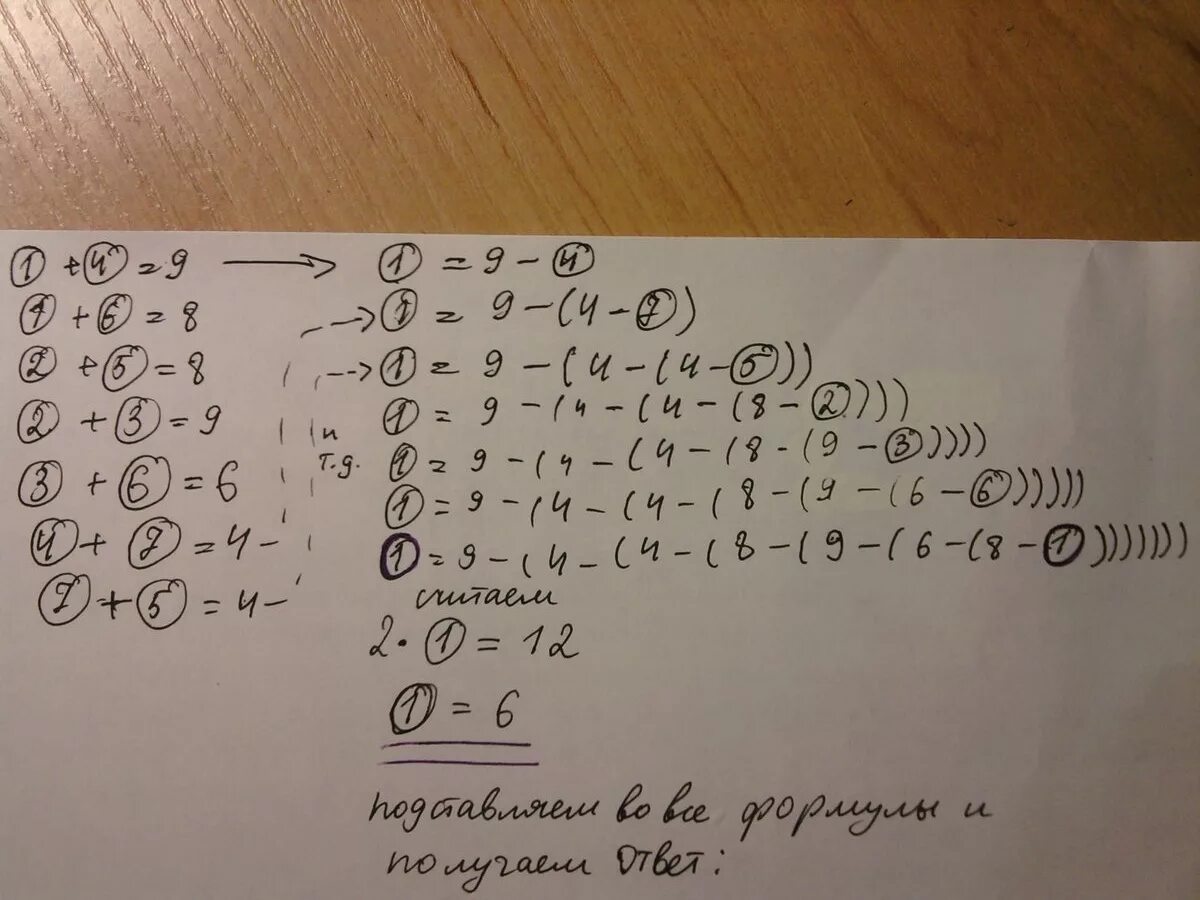 ① + ④ = 9
① + ⑥ = 8
② + ⑤ = 8
② + ③ = 9
③ + ⑥ = 6
④ + ⑦ = 4 -
⑦ + ⑤ = 4 -
и
т.д.
① = 9 - ④
① = 9 - (4 - ⑦)
① = 9 - (4 - (4 - ⑤)))
① = 9 - (4 - (4 - (8 - ②))))
① = 9 - (4 - (4 - (8 - (9 - ③)))))
① = 9 - (4 - (4 - (8 - (9 - (6 - ⑥))))))
① = 9 - (4 - (4 - (8 - (9 - (6 - (8 - ①)))))))
считаем
2 · ① = 12
① = 6
подставляем во все формулы и
получаем ответ: